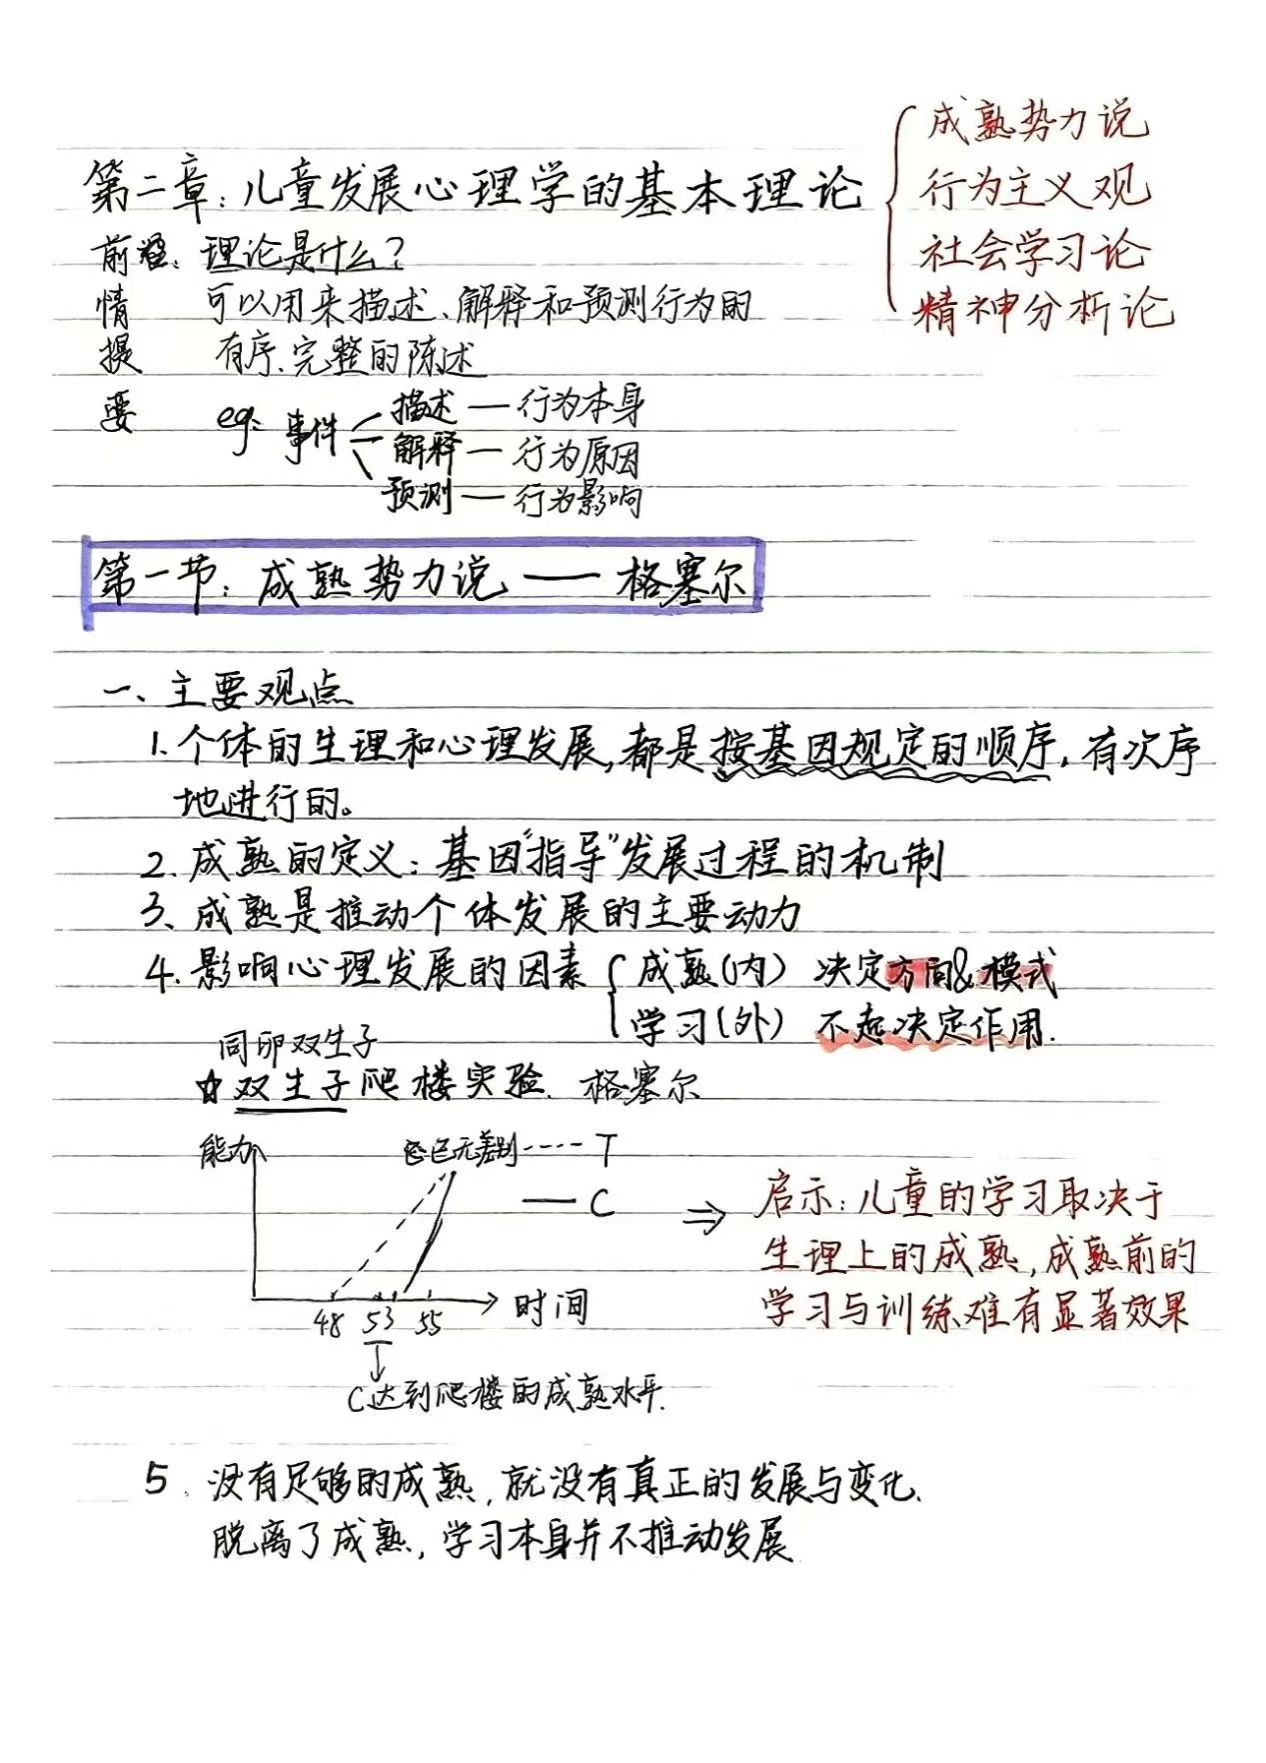 第二章：儿童发展心理学的基本理论
成熟势力说
行为主义观
社会学习论
精神分析论
前 理论是什么？
情 可以用来描述、解释和预测行为的
提 有序、完整的陈述
要 eg：事件
描述 — 行为本身
解释 — 行为原因
预测 — 行为影响
第一节：成熟势力说 —— 格塞尔
一、主要观点
1. 个体的生理和心理发展，都是按基因规定的顺序，有次序
地进行的。
2. 成熟的定义：基因“指导”发展过程的机制
3、成熟是推动个体发展的主要动力
4. 影响心理发展的因素
成熟（内） 决定方向&模式
学习（外） 不起决定作用.
同卵双生子
☆双生子爬楼实验. 格塞尔
能力
无差别 ---- T
— C
48 53 55 时间
C达到爬楼的成熟水平.
⇒ 启示：儿童的学习取决于
生理上的成熟，成熟前的
学习与训练难有显著效果
5. 没有足够的成熟，就没有真正的发展与变化.
脱离了成熟，学习本身并不推动发展